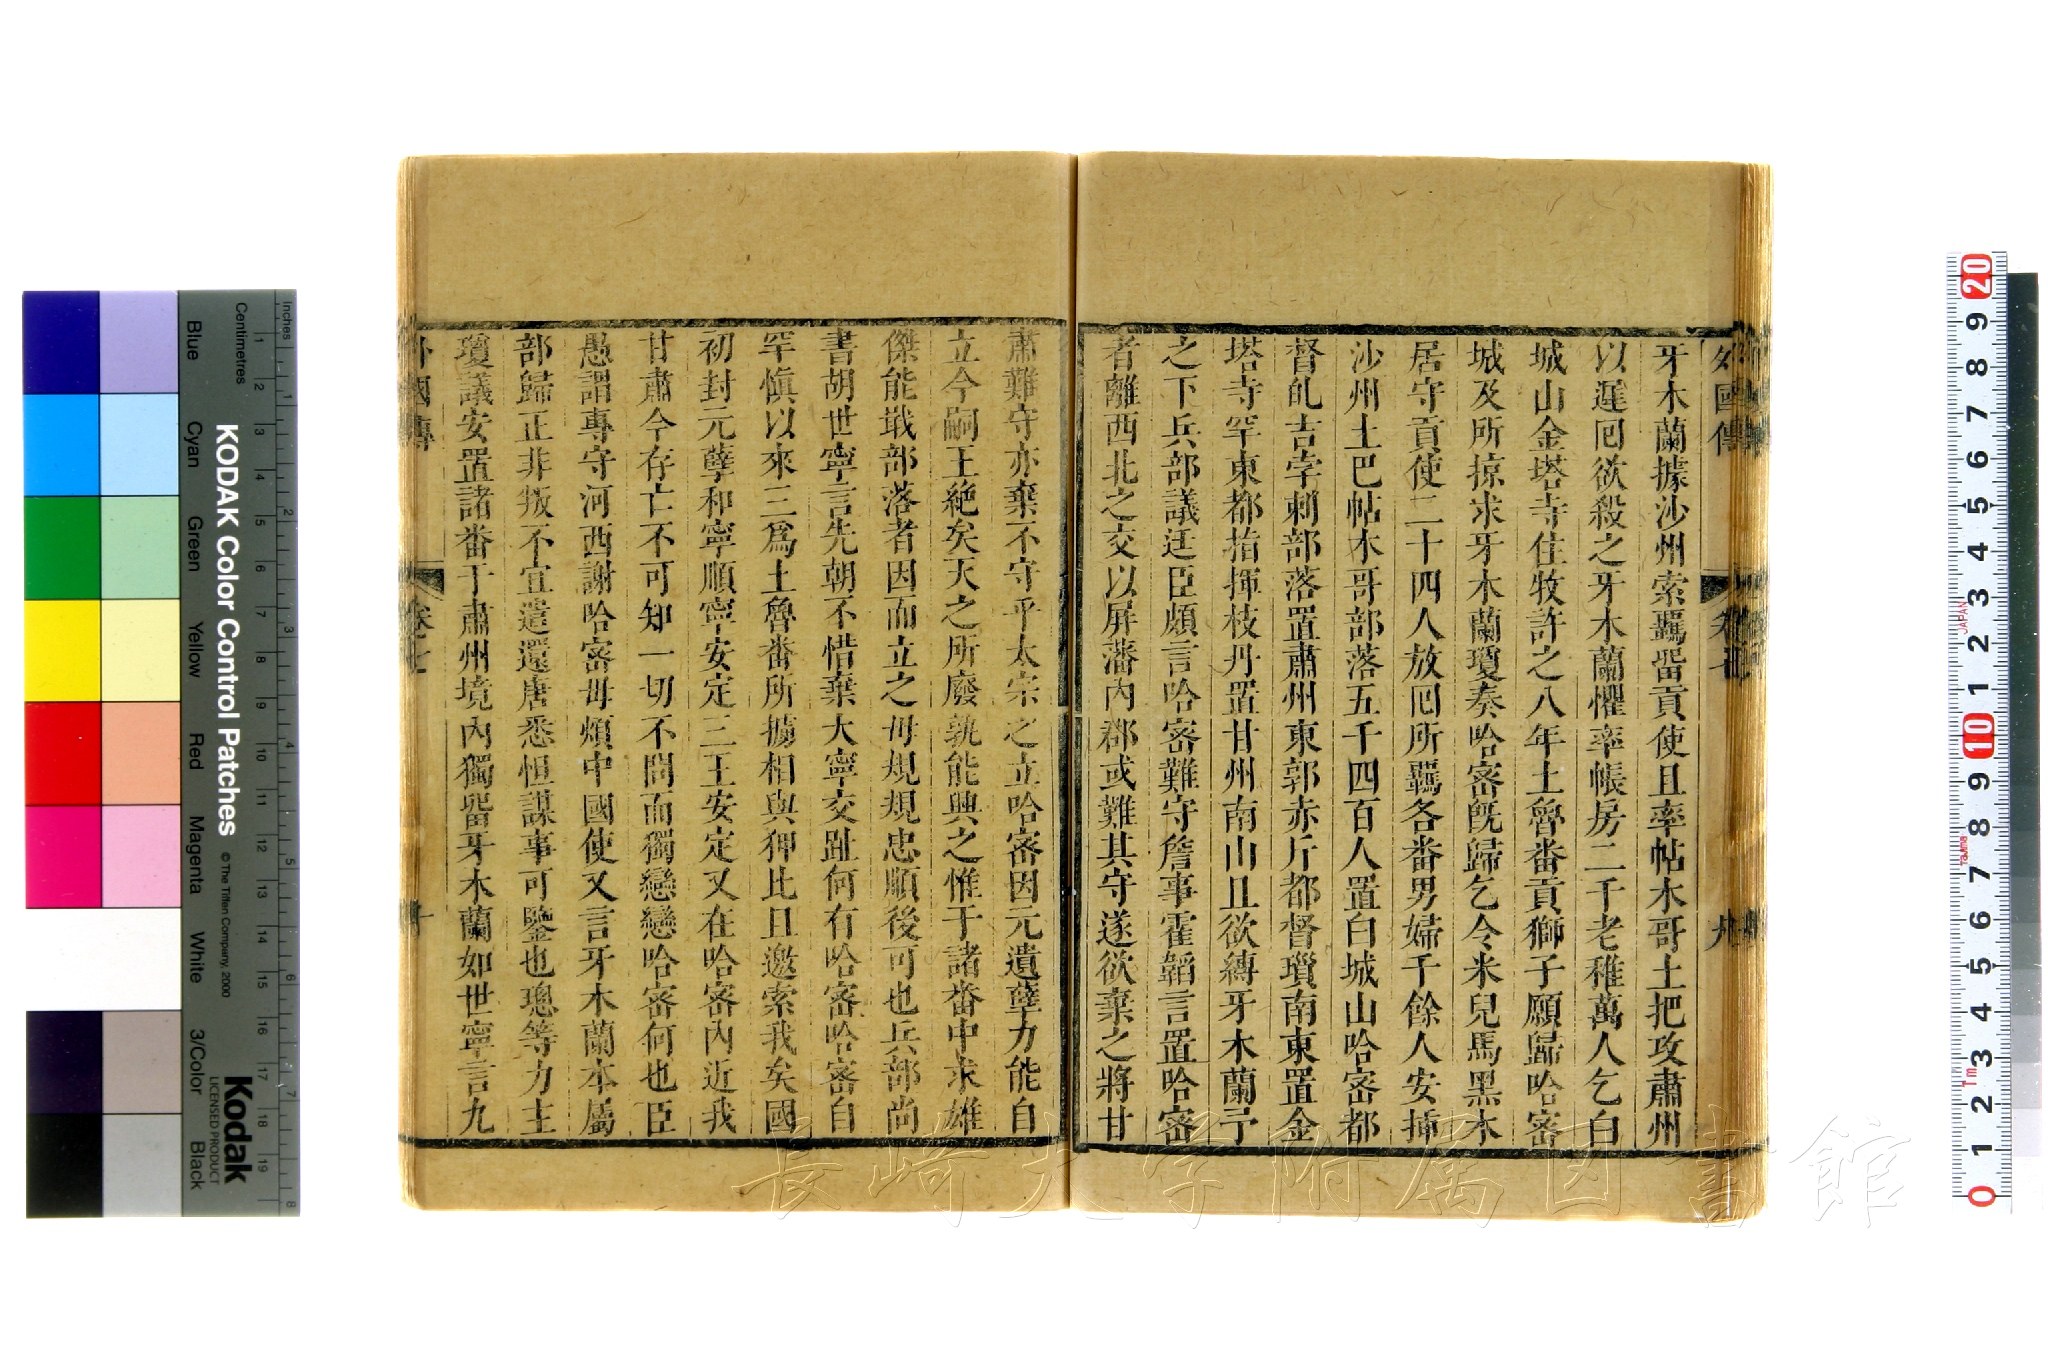 外國傳 卷七 九
牙木蘭據沙州索羈畱貢使且率帖木哥土把攻肅州
以遲囘欲殺之牙木蘭懼率帳房二千老稚萬人乞白
城山金塔寺住牧許之八年土魯番貢獅子願歸哈密
城及所掠求牙木蘭瓊奏哈密旣歸乞令米兒馬黑木
居守貢使二十四人放囘所羈各番男婦千餘人安揷
沙州土巴帖木哥部落五千四百人置白城山哈密都
督乩吉孛剌部落置肅州東郭赤斤都督瑣南東置金
塔寺罕東都指揮枝丹置甘州南山且欲縛牙木蘭予
之下兵部議廷臣頗言哈密難守詹事霍韜言置哈密
者離西北之交以屏藩內郡或難其守遂欲棄之將甘
肅難守亦棄不守乎太宗之立哈密因元遺孽力能自
立今嗣王絶矣天之所廢孰能興之惟于諸番中求雄
傑能戢部落者因而立之毋規規忠順後可也兵部尚
書胡世寧言先朝不惜棄大寧交趾何有哈密哈密自
罕愼以來三爲土魯番所擄相與狎比且邀索我矣國
初封元孽和寧順寧安定三王安定又在哈密內近我
甘肅今存亡不可知一切不問而獨戀戀哈密何也臣
愚謂專守河西謝哈密毋煩中國使又言牙木蘭本屬
部歸正非叛不宜遣還唐悉怛謀事可鑒也璁等力主
瓊議安置諸番于肅州境內獨畱牙木蘭如世寧言九
外國傳 卷七 十
KODAK Color Control Patches © The Tiffen Company, 2000
Kodak LICENSED PRODUCT
Centimetres Inches
Blue Cyan Green Yellow Red Magenta White 3/Color Black
長崎大学附属図書館